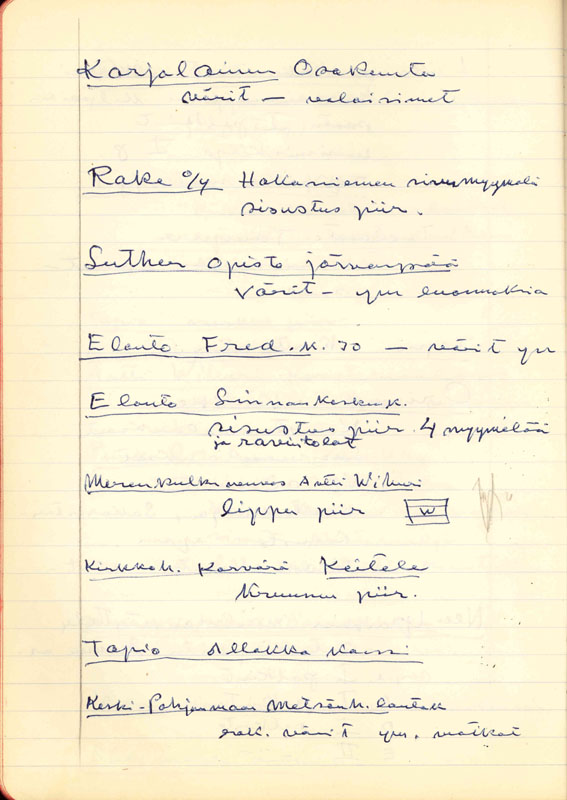 Karjalainen Osakunta
värit – valaisimet
Rake o/y Hakaniemen sivumyymälä
sisustus piir.
Luther opisto Järvenpää
värit – ym luonnoksia
Elanto Fred.k. 30 – värit ym
Elanto Linnankeskuk.
sisustus piir. 4 myymälää
ja ravintolat
Merenkulkuneuvos Antti Wihuri
lippu piir W
Kirkkoh. Karvärä Keitele
Kruunu piir.
Tapio Allakka kansi
Keski-Pohjanmaan Metsänh. lautak
rak. värit ym. matkat